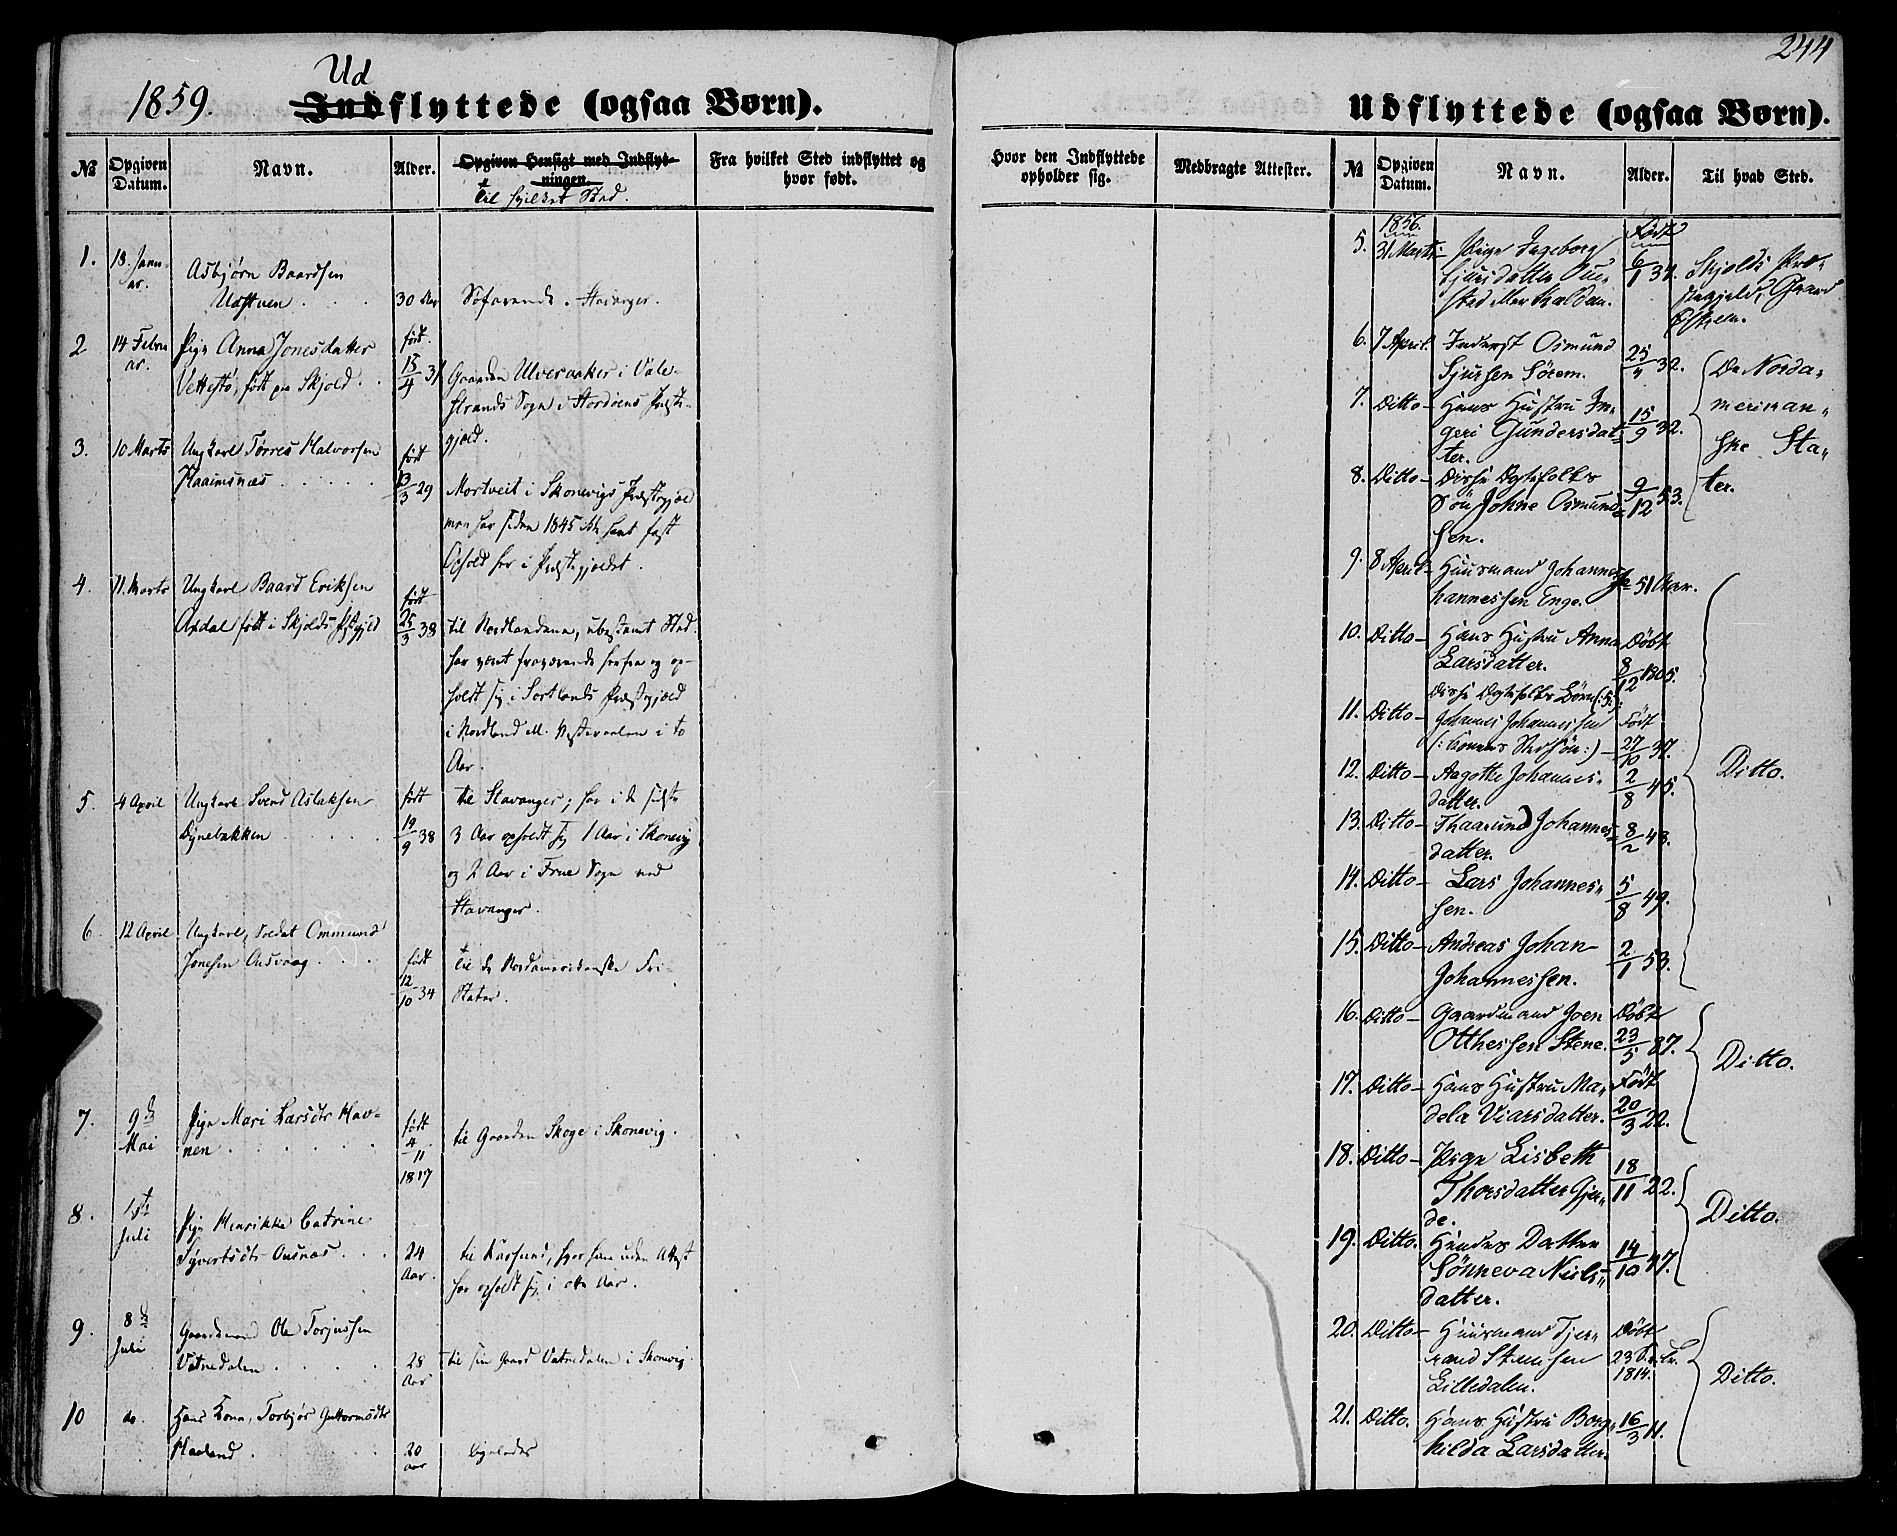 244
1859.
Ud
Indflyttede (ogsaa Børn).
№
Opgiven Datum.
Navn.
Alder.
Opgiven Hensigt med Indflyt-
ningen
til hvilket Sted.
Fra hvilket Sted indflyttet og
hvor født.
1.
18. Janu-
ar.
Asbjørn Baardsen
30 Aar
Søfarende. Stavanger.
2
14 Febru
ar.
Pige Anna Jonesdatter
født.
15/4 31
Vettestø, født paa Skjold . .
Gaarden Ulveraaker i Vale-
strands Sogn i Stordøens Præste-
gjeld.
3.
10 Marts
Ungkarl Tørres Halvorsen
født
13/3 29
Raaimsnæs . . . . .
Mortveit i Skonevigs Præstegjeld
men har siden 1845 havt fast
Ophold her i Præstegjeldet.
4.
11. Marts
Ungkarl Baard Eriksen
født
25/3 38
Axdal født i Skjolds Pgjeld
til Nordlandene, ubestemt Sted.
har været fraværende herfra og op-
holdt sig i Sortlands Præstegjeld
i Nordland i to
Aar.
5.
4 April
Ungkarl Svend Aslaksen
født
19/9 38
Dynebakken . . . .
til Stavanger; har i de sidste
3 Aar opholdt sig 1 Aar i Skonevig
og 2 Aar i Frue Sogn ved
Stavanger.
6.
12 April
Ungkarl, Soldat Ommund
Jonesen Ousvaag . . .
født
12/10 34
til de Nordamerikanske Fri-
Stater.
7.
9de
Mai
Pige Mari Larsdtr Hav-
nen . . . . . .
født
4/11
1817
til Gaarden Skoge i Skonevig.
8.
1ste
Juli
Pige Henrikke Catrine
Syvertsdtr Ousnæs . . .
24
Aar.
til Karsund, hvor hun uden Attest
har opholdt sig i otte Aar.
9.
8de
Juli
Gaardmand Ole Torjussen
Vatnedalen . . . . .
28
Aar
til sin Gaard Vatnedalen i Skonevig.
10
do.
Hans Kone, Torbjør Guttormsdtr
Haaland . . .
20
aar
ligeledes
Udflyttede (ogsaa Børn).
Hvor den Indflyttede
opholder sig.
Medbragte Attester.
№
Opgiven Datum.
Navn.
Alder.
Til hvad Sted.
1856.
5.
31 Marts
Pige Ingeborg
Sjursdatter
Født
6/1 34.
Skjolds Præ-
stegjeld, Gaard
Østhem.
6.
7 April.
Inderst Osmund
Sjursen Sørem.
25/4 32.
De Norda-
merikan-
ske Sta-
ter.
7.
Ditto
Hans Hustru In-
geri Gundersdat-
ter.
15/9 32.
8.
Ditto
Disse Ægtefolks
Søn Johne Osmund-
sen.
9/12 53.
9.
8 April
Huusmand Johannes Jo-
hannessen Enge.
51 Aar.
10.
Ditto
Hans Hustru Anna
Larsdatter.
Døbt
8/12 1805.
Disse Ægtefolks Børn (:5:):
11.
Ditto
Johannes Johannessen
Født
27/10 37.
12.
Ditto
Aagothe Johannes-
datter.
2/8 45.
Ditto.
13.
Ditto
Thaarund Johannes-
datter.
8/2 48.
14.
Ditto
Lars Johannes-
sen.
5/8 49.
15.
Ditto
Andreas Johan
Johannessen.
2/1 53.
16.
Ditto
Gaardmand Joen
Otthessen Stene.
Døbt
23/5 87.
Ditto.
17.
Ditto
Hans Hustru Ma-
dela Viarsdatter.
Født
20/3 22.
18.
Ditto
Pige Lisbeth
Thorsdatter Gjer-
de.
18/11 22.
Ditto.
19.
Ditto.
Hendes Datter
Sønneva Niels-
datter.
14/10 47.
20.
Ditto
Huusmand Tjer-
rand Steensen
Lilledalen.
Døbt
1814.
Ditto.
21.
Ditto.
Hans Hustru Borg-
hilda Larsdatter.
16/3 11.